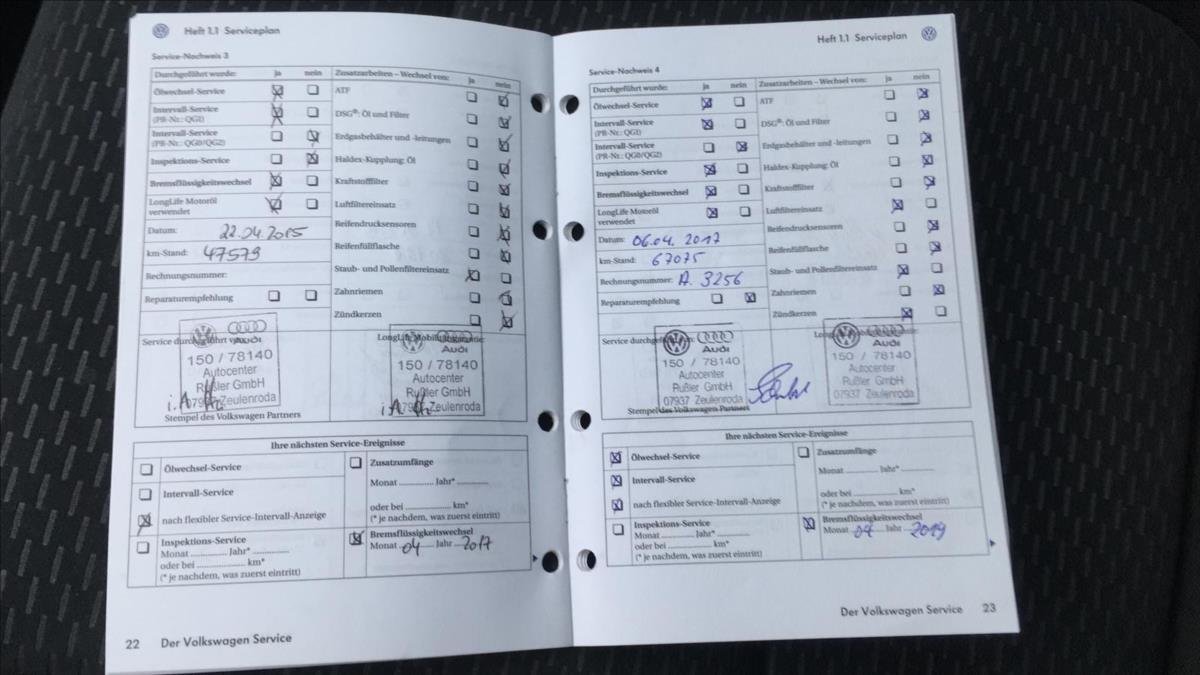 Heft 1.1 Serviceplan
Service-Nachweis 3
Durchgeführt wurde: ja nein
Ölwechsel-Service
Intervall-Service
(PR-Nr.: QG1)
Intervall-Service
(PR-Nr.: QG0/QG2)
Inspektions-Service
Bremsflüssigkeitswechsel
LongLife Motoröl
verwendet
Datum: 22.04.2015
km-Stand: 47579
Rechnungsnummer:
Reparaturempfehlung
Zusatzarbeiten – Wechsel von: ja nein
ATF
DSG®: Öl und Filter
Erdgasbehälter und -leitungen
Haldex-Kupplung: Öl
Kraftstofffilter
Luftfiltereinsatz
Reifendrucksensoren
Reifenfüllflasche
Staub- und Pollenfiltereinsatz
Zahnriemen
Zündkerzen
Service durchgeführt von:
Audi
150 / 78140
Autocenter
Rußler GmbH
07937 Zeulenroda
i.A
Stempel des Volkswagen Partners
LongLife Mobilitätsgarantie:
Audi
150 / 78140
Autocenter
Rußler GmbH
07937 Zeulenroda
i.A
Ihre nächsten Service-Ereignisse
Ölwechsel-Service
Intervall-Service
nach flexibler Service-Intervall-Anzeige
Inspektions-Service
Monat ............ Jahr* ............
oder bei ............ km*
(* je nachdem, was zuerst eintritt)
Zusatzumfänge
Monat ............ Jahr* ............
oder bei ............ km*
(* je nachdem, was zuerst eintritt)
Bremsflüssigkeitswechsel
Monat 04 Jahr 2017
22 Der Volkswagen Service
Heft 1.1 Serviceplan
Service-Nachweis 4
Durchgeführt wurde: ja nein
Ölwechsel-Service
Intervall-Service
(PR-Nr.: QG1)
Intervall-Service
(PR-Nr.: QG0/QG2)
Inspektions-Service
Bremsflüssigkeitswechsel
LongLife Motoröl
verwendet
Datum: 06.04.2017
km-Stand: 67075
Rechnungsnummer: A. 3256
Reparaturempfehlung
Zusatzarbeiten – Wechsel von: ja nein
ATF
DSG®: Öl und Filter
Erdgasbehälter und -leitungen
Haldex-Kupplung: Öl
Kraftstofffilter
Luftfiltereinsatz
Reifendrucksensoren
Reifenfüllflasche
Staub- und Pollenfiltereinsatz
Zahnriemen
Zündkerzen
Service durchgeführt von:
Audi
150 / 78140
Autocenter
Rußler GmbH
07937 Zeulenroda
Stempel des Volkswagen Partners
Audi
150 / 78140
Autocenter
Rußler GmbH
07937 Zeulenroda
Ihre nächsten Service-Ereignisse
Ölwechsel-Service
Intervall-Service
nach flexibler Service-Intervall-Anzeige
Inspektions-Service
Monat ............ Jahr* ............
oder bei ............ km*
(* je nachdem, was zuerst eintritt)
Zusatzumfänge
Monat ............ Jahr* ............
oder bei ............ km*
(* je nachdem, was zuerst eintritt)
Bremsflüssigkeitswechsel
Monat 04 Jahr 2019
Der Volkswagen Service 23